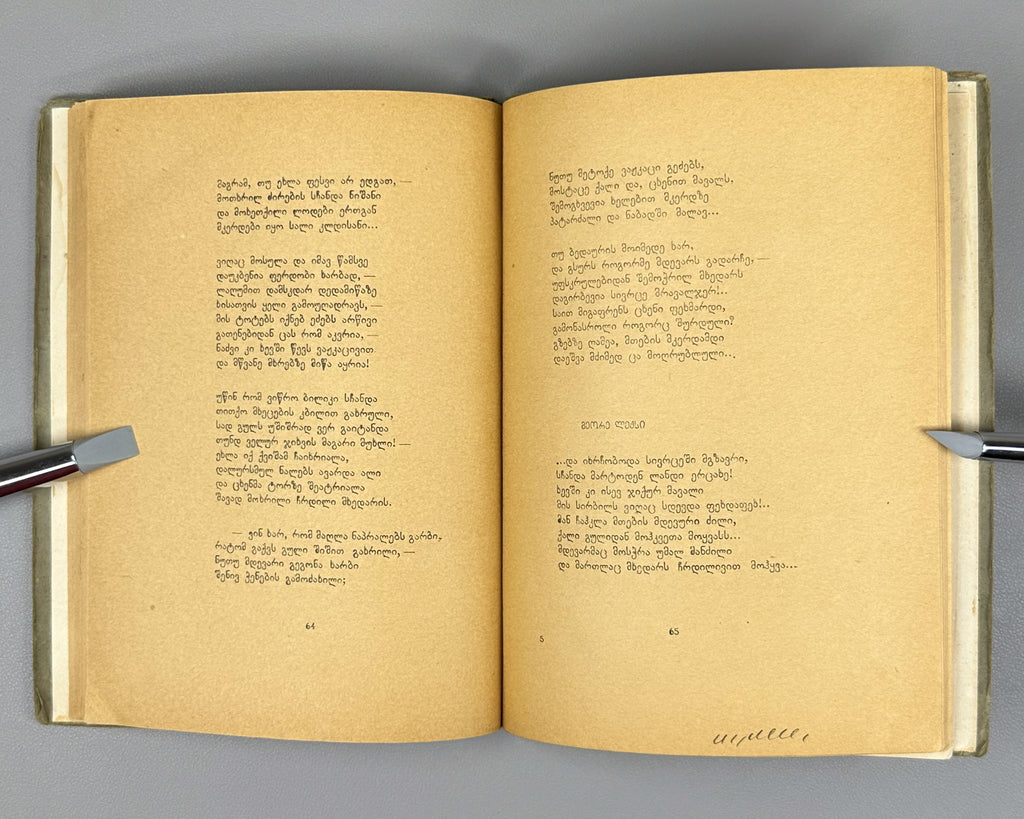 მაგრამ, თუ ეხლა ფესვი არ ედგათ, —
მოთხრილ ძირების სჩანდა ნიშანი
და მოხეთქილი ლოდები ერთგან
მკერდები იყო სალი კლდისანი...
ვიღაც მოსულა და იმავ წამსვე
დაუკბენია ფერდობი ხარბად, —
ლაღუმით დამსკდარ დედამიწაზე
ხისათვის ყელი გამოუღადრავს, —
მის ტოტებს იქნებ ეძებს არწივი
გათენებიდან ცას რომ აკვრია, —
ნაძვი კი ხევში წევს ვაჟკაცივით
და მწვანე მხრებზე მიწა აყრია!
უწინ რომ ვიწრო ბილიკი სჩანდა
თითქო მხეცების კბილით გახრული,
სად გულს უშიშრად ვერ გაიტანდა
თუნდ ველურ ჯიხვის მაგარი მუხლი! —
ეხლა იქ ქვიშამ ჩაიხრიალა,
დალურსმულ ნალებს ავარდა ალი
და ცხენმა ტორზე შეატრიალა
შავად მოხრილი ჩრდილი მხედარის.
— ვინ ხარ, რომ მაღლა ნაპრალებს გარბი,
რატომ გაქვს გული შიშით გახრილი, —
ნუთუ მდევარი გეგონა ხარბი
შენივ ჭენების გამოძახილი;
64
ნუთუ მეტოქე ვაჟკაცი გეძებს,
მოსტაცე ქალი და, ცხენით მავალს,
შემოგხვევია ხელებით მკერდზე
პატარძალი და ნაბადში მალავ...
თუ ბედაურის მოიმედე ხარ,
და გსურს როგორმე მდევარს გადარჩე, —
უფსკრულებიდან შემოჭრილ მხედარს
დაგირბევია სივრცე მრავალჯერ!..
საით მიგაფრენს ცხენი ფეხმარდი,
გამონასროლი როგორც შურდული?
გზებზე ღამეა, მთების მკერდამდი
დაეშვა მძიმედ ცა მოღრუბლული...
მეორე ლექსი
...და იხრჩობოდა სივრცეში მგზავრი,
სჩანდა მარტოდენ ლანდი ერცახე!
ხევში კი ისევ ჯიქურ მავალი
მის სირბილს ვიღაც სდევდა ფეხდაფეხ!..
მან ჩაჰკლა მთების მდევური ძილი,
ქალი გულიდან მოჰკვეთა მოყვასს...
მდევარმაც მოსჭრა უმალ მანძილი
და მართლაც მხედარს ჩრდილივით მოჰყვა...
5
65